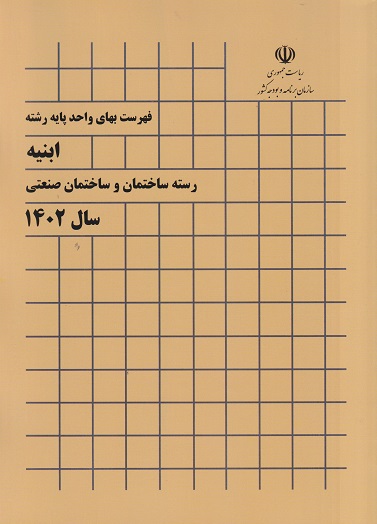 ریاست جمهوری
سازمان برنامه و بودجه کشور
فهرست بهای واحد پایه رشته
ابنیه
رسته ساختمان و ساختمان صنعتی
سال ۱۴۰۲